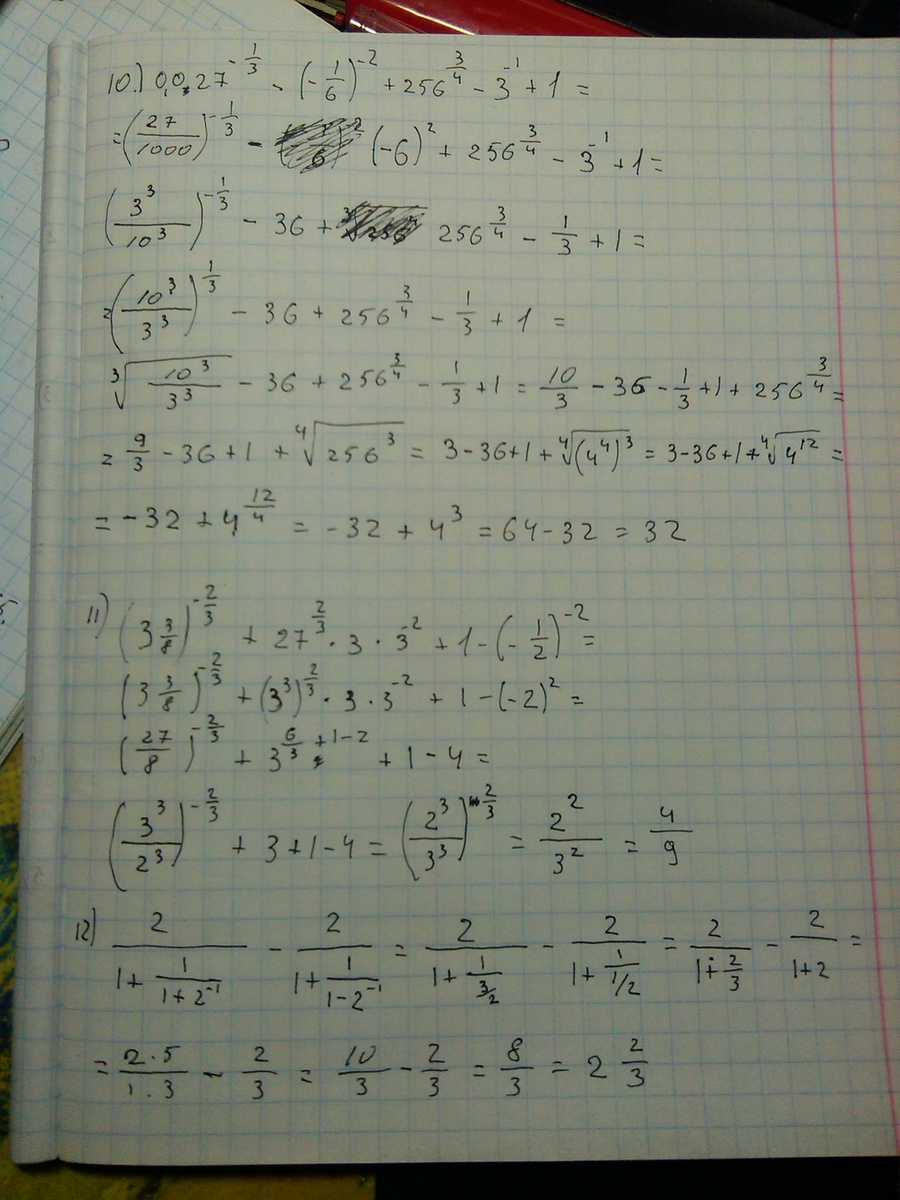 10.) 0,027^{-1/3} - (-1/6)^{-2} + 256^{3/4} - 3^{-1} + 1 =
= (27/1000)^{-1/3} - (-6)^2 + 256^{3/4} - 3^{-1} + 1 =
(3^3/10^3)^{-1/3} - 36 + 256^{3/4} - 1/3 + 1 =
= (10^3/3^3)^{1/3} - 36 + 256^{3/4} - 1/3 + 1 =
∛(10^3/3^3) - 36 + 256^{3/4} - 1/3 + 1 = 10/3 - 36 - 1/3 + 1 + 256^{3/4} =
= 9/3 - 36 + 1 + ∜(256^3) = 3 - 36 + 1 + ∜((4^4)^3) = 3 - 36 + 1 + ∜(4^{12}) =
= -32 + 4^{12/4} = -32 + 4^3 = 64 - 32 = 32
11) (3 3/8)^{-2/3} + 27^{2/3} · 3 · 3^{-2} + 1 - (-1/2)^{-2} =
(3 3/8)^{-2/3} + (3^3)^{2/3} · 3 · 3^{-2} + 1 - (-2)^2 =
(27/8)^{-2/3} + 3^{6/3 + 1 - 2} + 1 - 4 =
(3^3/2^3)^{-2/3} + 3 + 1 - 4 = (2^3/3^3)^{2/3} = 2^2/3^2 = 4/9
12) 2/(1 + 1/(1 + 2^{-1})) - 2/(1 + 1/(1 - 2^{-1})) = 2/(1 + 1/(3/2)) - 2/(1 + 1/(1/2)) = 2/(1 + 2/3) - 2/(1 + 2) =
= 2·5/1·3 - 2/3 = 10/3 - 2/3 = 8/3 = 2 2/3